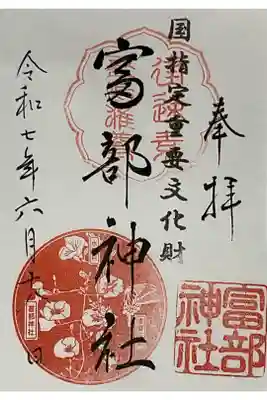 奉拝
国指定重要文化財
富部神社
令和七年六月十八日
富部
神社
富部神社